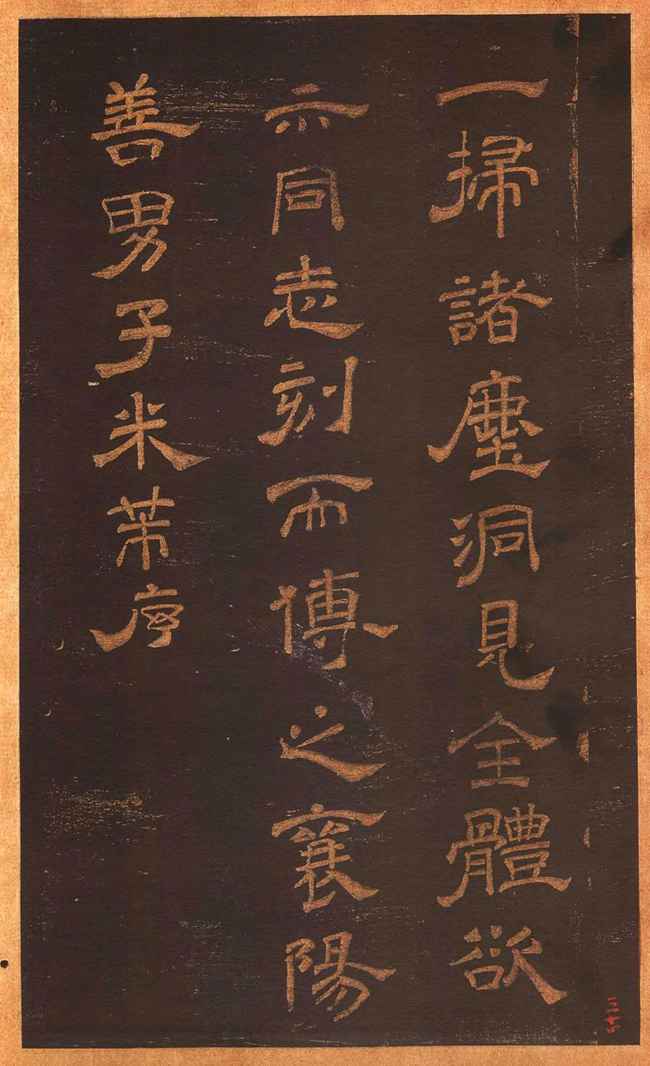 一掃諸塵洞見全體欲
示同志刻而傳之襄陽
善男子米芾序
三十六